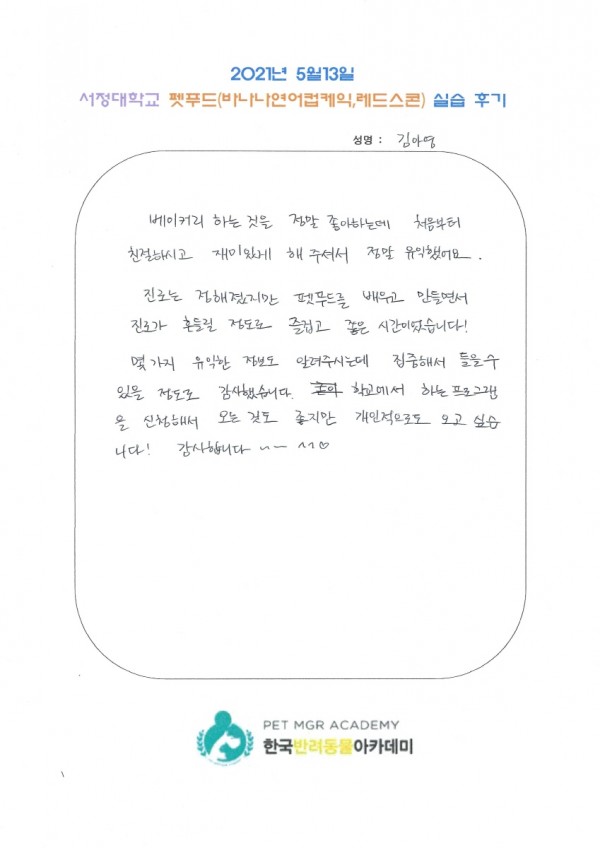 2021년 5월13일
서정대학교 펫푸드(바나나연어컵케익,레드스콘) 실습 후기
성명 : 김아영
베이커리 하는 것을 정말 좋아하는데 처음부터
친절하시고 재미있게 해 주셔서 정말 유익했어요.
진로는 정해졌지만 펫푸드를 배우고 만들면서
진로가 흔들릴 정도로 즐겁고 좋은 시간이었습니다!
몇 가지 유익한 정보도 알려주시는데 집중해서 들을 수
있을 정도로 감사했습니다. 학교에서 하는 프로그램
을 신청해서 오는 것도 좋지만 개인적으로도 오고 싶습
니다! 감사합니다 ~~ ^^♡
PET MGR ACADEMY
한국반려동물아카데미